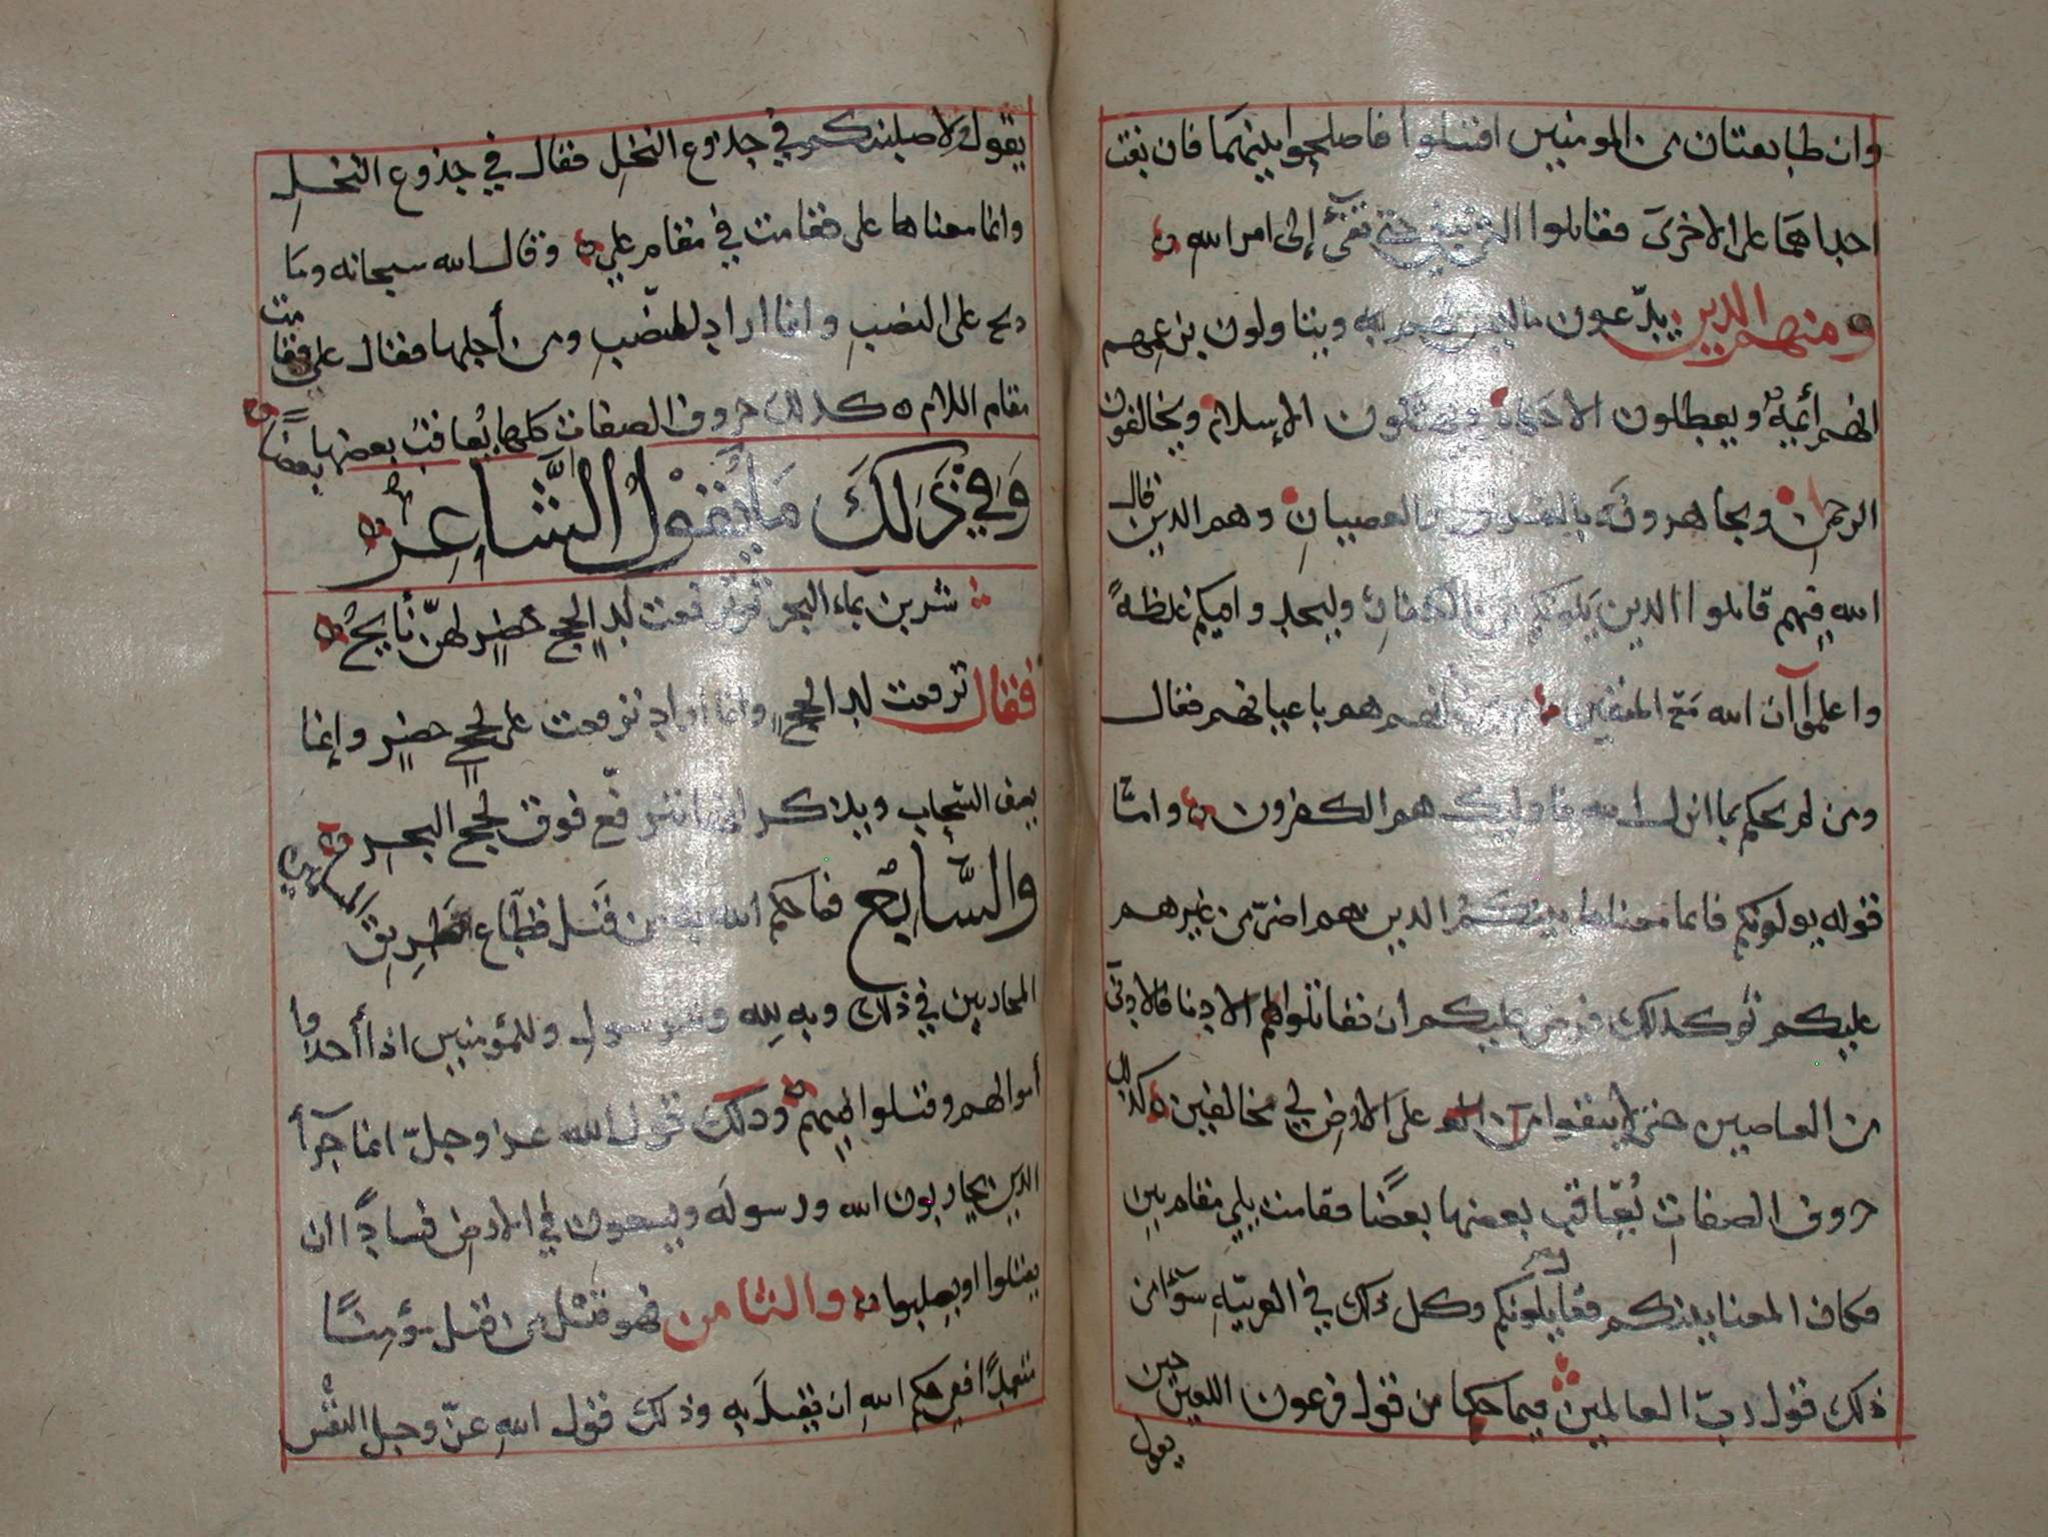 وان طايفتان من المومنين اقتتلوا فاصلحوا بينهما فان بغت
احداهما على الاخرى فقاتلوا التي تبغي حتى تفئ إلى امر الله
ومنهم الذين يدّعون ما ليس لهم به ويتناولون بزعمهم
انهم أئمة ويعطلون الاحكام الإسلام ويخالفون
الرحمن ويجاهرونه بالفسوق والعصيان وهم الذين قال
الله فيهم قاتلوا الذين يلونكم من الكفار وليجدوا فيكم غلظة
واعلموا آن الله مع المتقين هم باعيانهم فقال
ومن لم يحكم بما انزل الله فاوليك هم الكفرون وامّا
قوله يلونكم فانما معناها بينكم الذين هم اضرّ من غيرهم
عليكم فرض عليكم ان تقاتلوا الادنا فالادنى
من العاصين حتى لا يبقوا على الارض لي مخالفين كذلك
حروف الصفات يُعاقب بعضها بعضًا فقامت يلي مقام بين
فكان المعنا بينكم فقال يلونكم وكل ذلك في العربيّة سوآ من
ذلك قول ربّ العالمين فيما حكا من قول فرعون اللعين حين
يقول
يقول ولاصلبنكم في جذوع النخل فقال في جذوع النخل
وانما معناها على فقامت في مقام على وقال الله سبحانه وما
ذبح على النصب وانما اراد للنصب ومن أجلها فقال على فقامت
مقام اللام كذلك حروف الصفات كلها يُعاقب بعضها بعضًا
وَفِي ذَلِكَ مَا يَقُولُ الشَّاعِرُ
شربن بماء البحر ثم ترفعت لدا لجج خضر لهنّ نأيج
فقال ترفعت لدا لجج وانما اراد ترفعت على لجج خضر وإنما
يصف السحاب ويذكر انها ترفّع فوق لجج البحر
والسَّابِع فما حكم الله به من قتل قطّاع الطريق المسلمين
المحاربين في ذلك لله ولرسوله وللمؤمنين اذا أخذوا
أموالهم وقتلوا وذلك قول الله عز وجلّ انما جزآأ
الذين يحاربون الله ورسوله ويسعون في الارض فسادًا ان
يقتلوا او يصلبوا والثامن فهو قتل من قتل مؤمنًا
متعمدًا ففي حكم الله ان يقتل به وذلك قول الله عزّ وجل النفْس